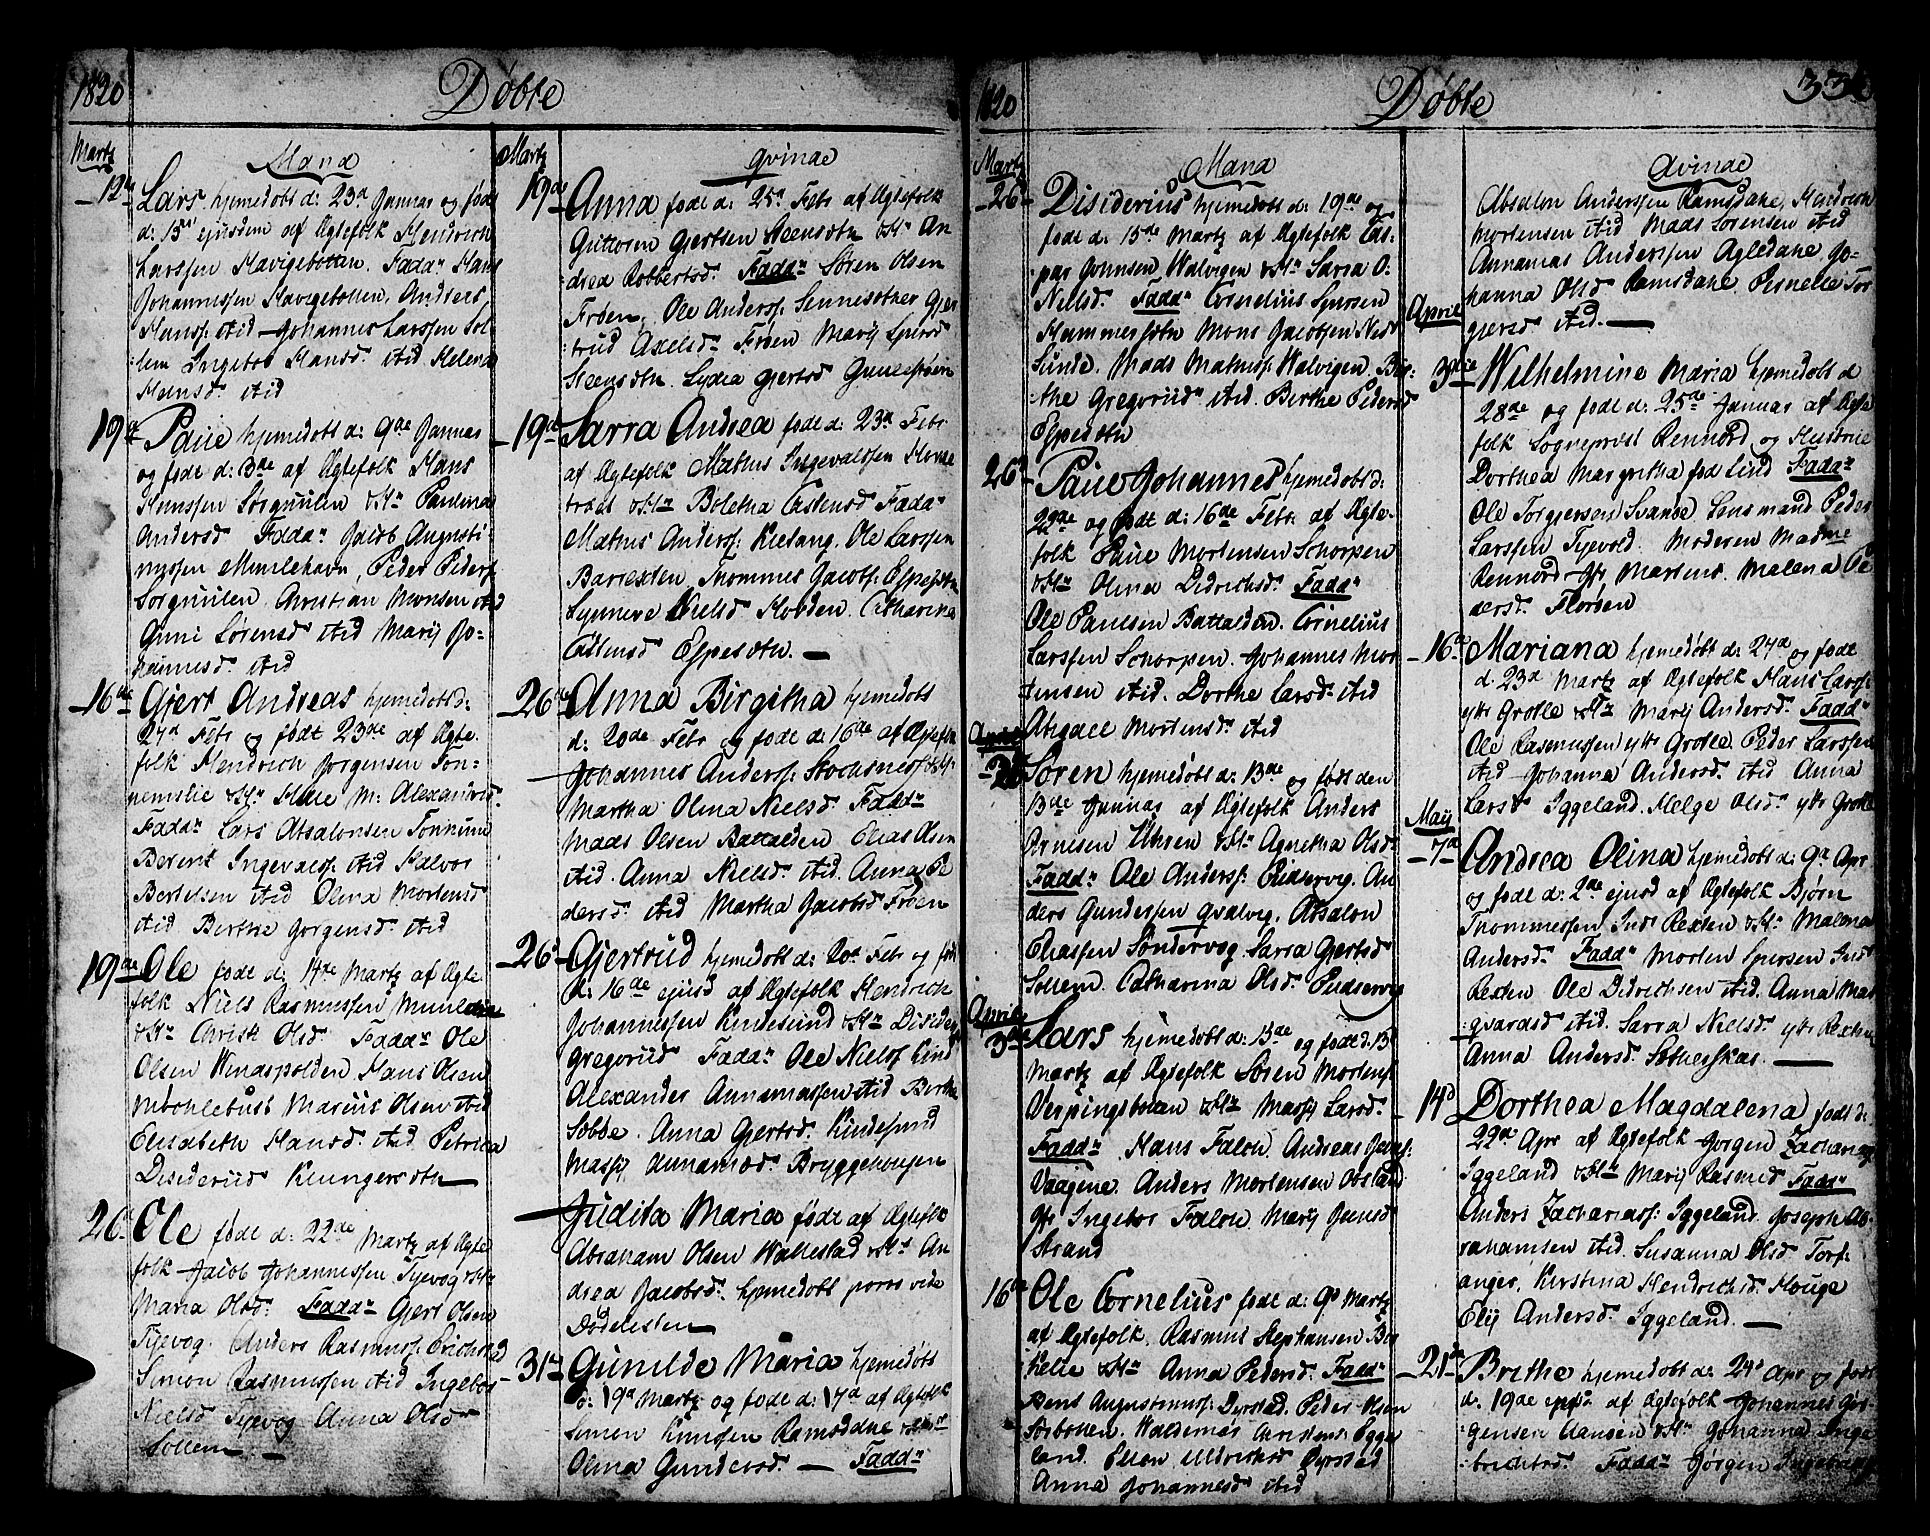 1820
Døbte
Martz
Mana
12te
Lars hjemedøbt d: 23d Januar og født
d: 13d ejusdem af Ægtefolk Hendrich
Larssen Havigebotten. Fadd:r Hans
Johannessen Havigebotten, Anders
Hanss: itid Johannes Larssen Sol-
:lem Ingebor Hansd: itid Helena
Hansd: itid
19de
Paul hjemedøbt d: 9de Januar
og føde d: 3de af Ægtefolk Hans
Hanssen Sørgulen &H:r Paulina
Andersd Fadd:r Jacob Augusti-
nussen Mulehavn, Peder Peders:
Sørgulen Christian Monsen itid
Anne Sørensd itid Marij Jo-
hannesd: itid
16de
Gjert Andreas hjemedøbt d:
24d Febr og født 23de af Ægte-
folk Hendrich Jørgensen Ton-
nemslie &H:r Hille M: Alexandrid:
Fadd:r Lars Absalonsen Tonnum
Berent Ingevalds: itid Halvor
Bertelsen itid Olina Mortensd
itid Berthe Jørgensd: itid
19de
Ole føde d: 14de Martz af Ægte
folk Niels Rasmussen Mule
&H:r Christi Olsd: Fadd:r Ole
Olsen Hans Olsen
Marius Olsen itid
Elisabeth Hansd: itid Petrica
Disideriid
26d
Ole føde d: 22de Martz af Ægte
folk Jacob Johannessen Tyevog &H:r
Maria Olsd: Fadd:r Gjert Olsen
Tyevog. Anders Rasmuss:
Simon Rasmussen itid Ingebor
Nielsd Tyevog Anna Olsd
Sollem.
Martz
Qvinde
19de
Anna føde d: 25d Febr af Ægtefolk
Guttorm Gjertsen Steensotn &H:r An
drea Robbertsd. Fadd:r Søren Olsen
Frøen, Ole Anderss: Gjer
trud Axelsd: Frøen Marij Sjursd
Steensotn. Lydia Gjertsd
19de
Sarra Andrea føde d: 23d Febr
af Ægtefolk Mathis Ingevaldsen
&H:r Boletha Castensd Fadd:r
Mathis Anderss: Ole Larssen
Barlexten, Thommes Jacobs: Espesotn
Synneve Nielsd Hovden. Catharina
Castensd Espesotn.
26de
Anna Birgitha hjemedøbt
d: 20de Febr og føde d: 16de af Ægtefolk
Johannes Anderss: Stochsness &H:r
Martha Olina Nielsd: Fadd:r
Mads Olsen Battalden Elias Olsen
itid. Anna Nielsd: itid. Anna Pe
dersd: itid Martha Jacobsd Frøen
26d
Gjertrud hjemedøbt d: 20d Febr og født
d: 16de ejusd af Ægtefolk Hendrich
Johannessen Kindesund &H:r Disideri
Gregoriid Fadd:r Ole Niels: Kind
Alexander Annanassen itid Berthe
Sobbe. Anna Gjertsd: Kindesund
Massij Annanæd: Bryggehousen
Judita Maria føde af Ægtefolk
Abraham Olsen Wallestad &H:r An
drea Jacobsd: hjemedøbt
Dødelisten
31te
Gunilde Maria hjemedøbt
d: 19d Martz og føde d: 17d af Ægtefolk
Simon Knussen Ramsdahl
Olina Gundersd: Fadd:r
1820
Døbte
Martz
Mana
26
Disiderius hjemedøbt d: 19de og
føde d: 15de Martz af Ægtefolk Cas-
:par Walvigen &H:r Sarra O
Nielsd: Fadd:r Cornelius Sjursen
Hammersotn Mons Jacobsen Nedr
Sunde. Mads Mathiss: Walvigen. Ber-
:the Gregoriid: itid. Berthe Pedersd
Espesotn
26d
Paul Johannes hjemedøbt d:
22de og født d: 16de Febr. af Ægte-
folk Paul Mortensen Schorpen
&H:r Olina Didrichsd: Fadd:r
Ole Paulsen Battalden. Cornelius
Larssen Schorpen. Johannes Mor
tensen itid. Dorthe Larsd: itid
Abigael Mortensd: itid
April
2d
Søren hjemedøbt d: 13de og født den
13de Januar af Ægtefolk Anders
Arnesen Uhren &H:r Agnetha Olsd:
Fadd:r Ole Anderss: Pudservig. An
ders Gundersen Qvalvig. Absalon
Eliassen Søndervog Sarra Gjertsd
Sollem. Catharina Olsd: Pudservig
April
3de
Lars hjemedøbt d: 13de og føde d: 13
Martz af Ægtefolk Søren Mortens:
&H:r Massij Larsd:
Fadd:r Hans Falch, Andreas
Vaagene. Anders Mortensen
Jfr Ingebor Falch. Marij Jensd
Strand
16de
Ole Cornelius føde d: 9d Martz
af Ægtefolk. Rasmus Stephansen
&H:r Anna Pedersd: Fadd:r
Bent Augustinuss: Dyrstad. Peder Olsen
Sørbotten. Waldemar Christens: Egge
land. Ellen Aldrichsd Dyrstad
Anna Johannesd itid
330
Qvinde
Absalon Anderssen Ramsdahl, Hendrich
Mortensen itid Mads Sørensen itid
Annanias Anderssen Ageldahl Jo-
hanna Olsd Ramsdahl. Pernelle Tor
gjersd itid.
April
3die
Wilhelmine Maria hjemedøbt d
28de og føde d: 25de Januar af Ægte
folk Sogneprest Rennord og Hustrue
Dorthea Margritha fød Lind Fadd:r
Ole Torgjersen Svanøe. Lensmand Peder
Larssen Tyevold. Moderen Madme
Rennord Jfr Martens. Malena Pe
dersd: Florøen
16de
Mariana hjemedøbt d: 24d og føde
d: 23d Martz af Ægtefolk Hans Larss:
ytr Grolle &H:r Marij Andersd: Fadd:r
Ole Rasmussen ytr Grolle. Peder Larssen
itid Johanna Andersd: itid Anna
Larsd: Iggeland. Helge Olsd: ytr Grolle
Maij
7de
Andrea Olina hjemedøbt d: 9d Apr
og føde d: 2de ejusd af Ægtefolk Bjørn
Thommessen Indr Rexten &H:r Malena
Andersd: Fadd:r Morten Sjursen Indr
Rexten Ole Didrichsen itid. Anna Mar
gvardsd itid. Sarra Nielsd: ytr Rexten
Anna Andersd: Sotheskar.
14d
Dorthea Magdalena født d:
22de Apr af Ægtefolk Jørgen Zacharias
Iggeland &H:r Marij Rasmusd Fadd:r
Anders Zacharias: Iggeland. Joseph Ab-
rahamsen itid. Susanna Olsd Torf-
anger, Kirstina Hendrichsd Houge
Elij Andersd: Iggeland.
21de
Brithe hjemedøbt d: 24d Apr og født
d: 19de ejusd af Ægtefolk Johannes Jør-
gensen Aansen &H:r Johanna Inge
:brechtsd: Fadd:r Jørgen